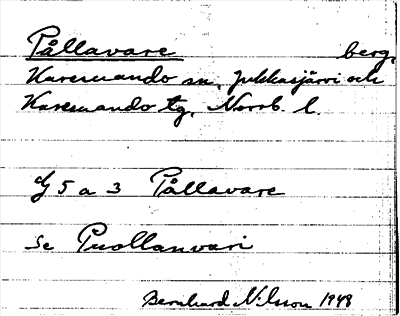 Pållavare berg,
Karesuando sn, Jukkasjärvi och
Karesuando tg, Norrb. l.
dj 5 a 3 Pållavare
Se Puollanvari
Bernhard Nilsson 1948